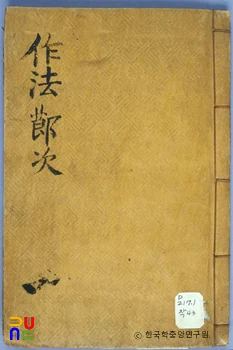 作法節次
D
217.1
작43
ⓒ 한국학중앙연구원